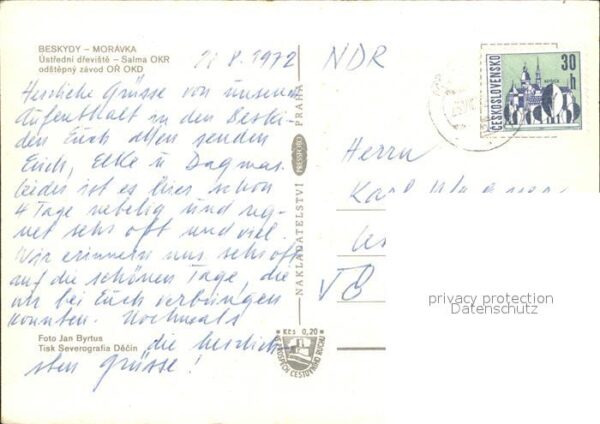 BESKYDY – MORÁVKA
Ústřední dřeviště – Salma OKR
odštěpný závod OŘ OKD
8. 1972
Herzliche Grüsse von unserem
Aufenthalt in den Beski-
den Euch allen senden
Euch, Elke u Dagmar.
Leider ist es hier schon
4 Tage neblig und reg-
net sehr oft und viel.
Wir erinnern uns sehr oft
auf die schönen Tage, die
wir bei Euch verbringen
konnten. Nochmals
die herzlich-
sten Grüsse!
Foto Jan Byrtus
Tisk Severografia Děčín
NAKLADATELSTVÍ PRESSFOTO PRAHA
Kčs 0,20
NDR
ČESKOSLOVENSKO
30 h
Herrn
Karl
privacy protection
Datenschutz